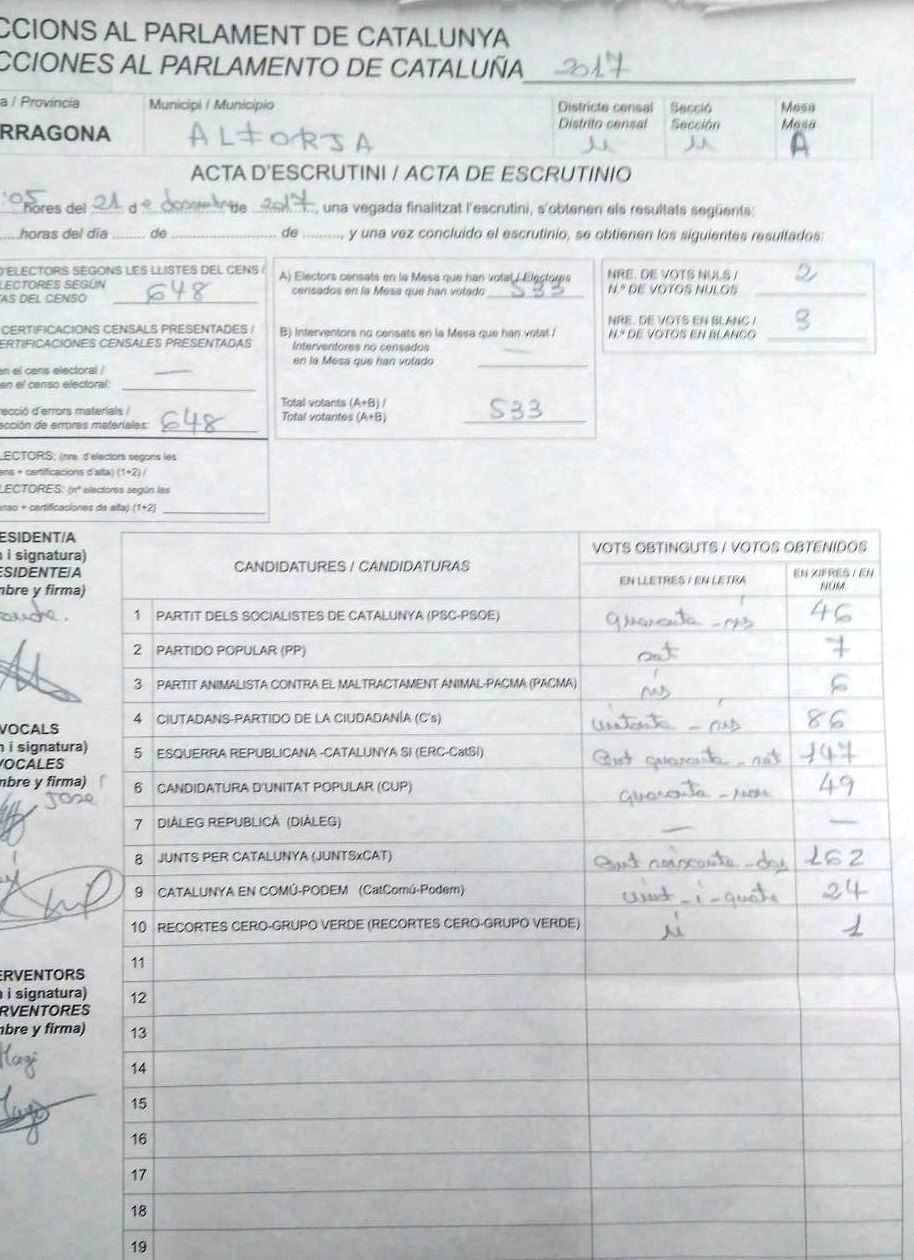 CCIONS AL PARLAMENT DE CATALUNYA
CCIONES AL PARLAMENTO DE CATALUÑA 2017
a / Provincia
RRAGONA
Municipi / Municipio
ALFORJA
Districte censal
Distrito censal
Secció
Sección
Mesa
Mesa
A
ACTA D'ESCRUTINI / ACTA DE ESCRUTINIO
'05 hores del 21 de desembre de 2017, una vegada finalitzat l'escrutini, s'obtenen els resultats següents:
horas del día ........ de ........................ de ........, y una vez concluido el escrutinio, se obtienen los siguientes resultados:
D'ELECTORS SEGONS LES LLISTES DEL CENS /
LECTORES SEGÚN
TAS DEL CENSO 648
CERTIFICACIONS CENSALS PRESENTADES /
ERTIFICACIONES CENSALES PRESENTADAS
en el cens electoral / —
en el censo electoral:
recció d'errors materials /
cción de errores materiales: 648
LECTORS: (nre. d'electors segons les
ens + certificacions d'alta) (1+2) /
LECTORES: (nº electores según las
nso + certificaciones de alta) (1+2)
A) Electors censats en la Mesa que han votat / Electores
censados en la Mesa que han votado 533
B) Interventors no censats en la Mesa que han votat /
Interventores no censados
en la Mesa que han votado —
Total votants (A+B) /
Total votantes (A+B) 533
NRE. DE VOTS NULS /
N.º DE VOTOS NULOS 2
NRE. DE VOTS EN BLANC /
N.º DE VOTOS EN BLANCO 3
ESIDENT/A
i signatura)
ESIDENTE/A
mbre y firma)
VOCALS
i signatura)
VOCALES
mbre y firma)
Jose
ERVENTORS
i signatura)
RVENTORES
mbre y firma)
Magi
CANDIDATURES / CANDIDATURAS
VOTS OBTINGUTS / VOTOS OBTENIDOS
EN LLETRES / EN LETRA
EN XIFRES / EN
NÚM.
1 PARTIT DELS SOCIALISTES DE CATALUNYA (PSC-PSOE) quaranta-sis 46
2 PARTIDO POPULAR (PP) set 7
3 PARTIT ANIMALISTA CONTRA EL MALTRACTAMENT ANIMAL-PACMA (PACMA) sis 6
4 CIUTADANS-PARTIDO DE LA CIUDADANÍA (C's) vuitanta-sis 86
5 ESQUERRA REPUBLICANA -CATALUNYA SI (ERC-CatSI) Cent quaranta-set 147
6 CANDIDATURA D'UNITAT POPULAR (CUP) quaranta-nou 49
7 DIÀLEG REPUBLICÀ (DIÀLEG) — —
8 JUNTS PER CATALUNYA (JUNTSxCAT) Cent seixanta-dos 162
9 CATALUNYA EN COMÚ-PODEM (CatComú-Podem) vint-i-quatre 24
10 RECORTES CERO-GRUPO VERDE (RECORTES CERO-GRUPO VERDE) 1
11
12
13
14
15
16
17
18
19